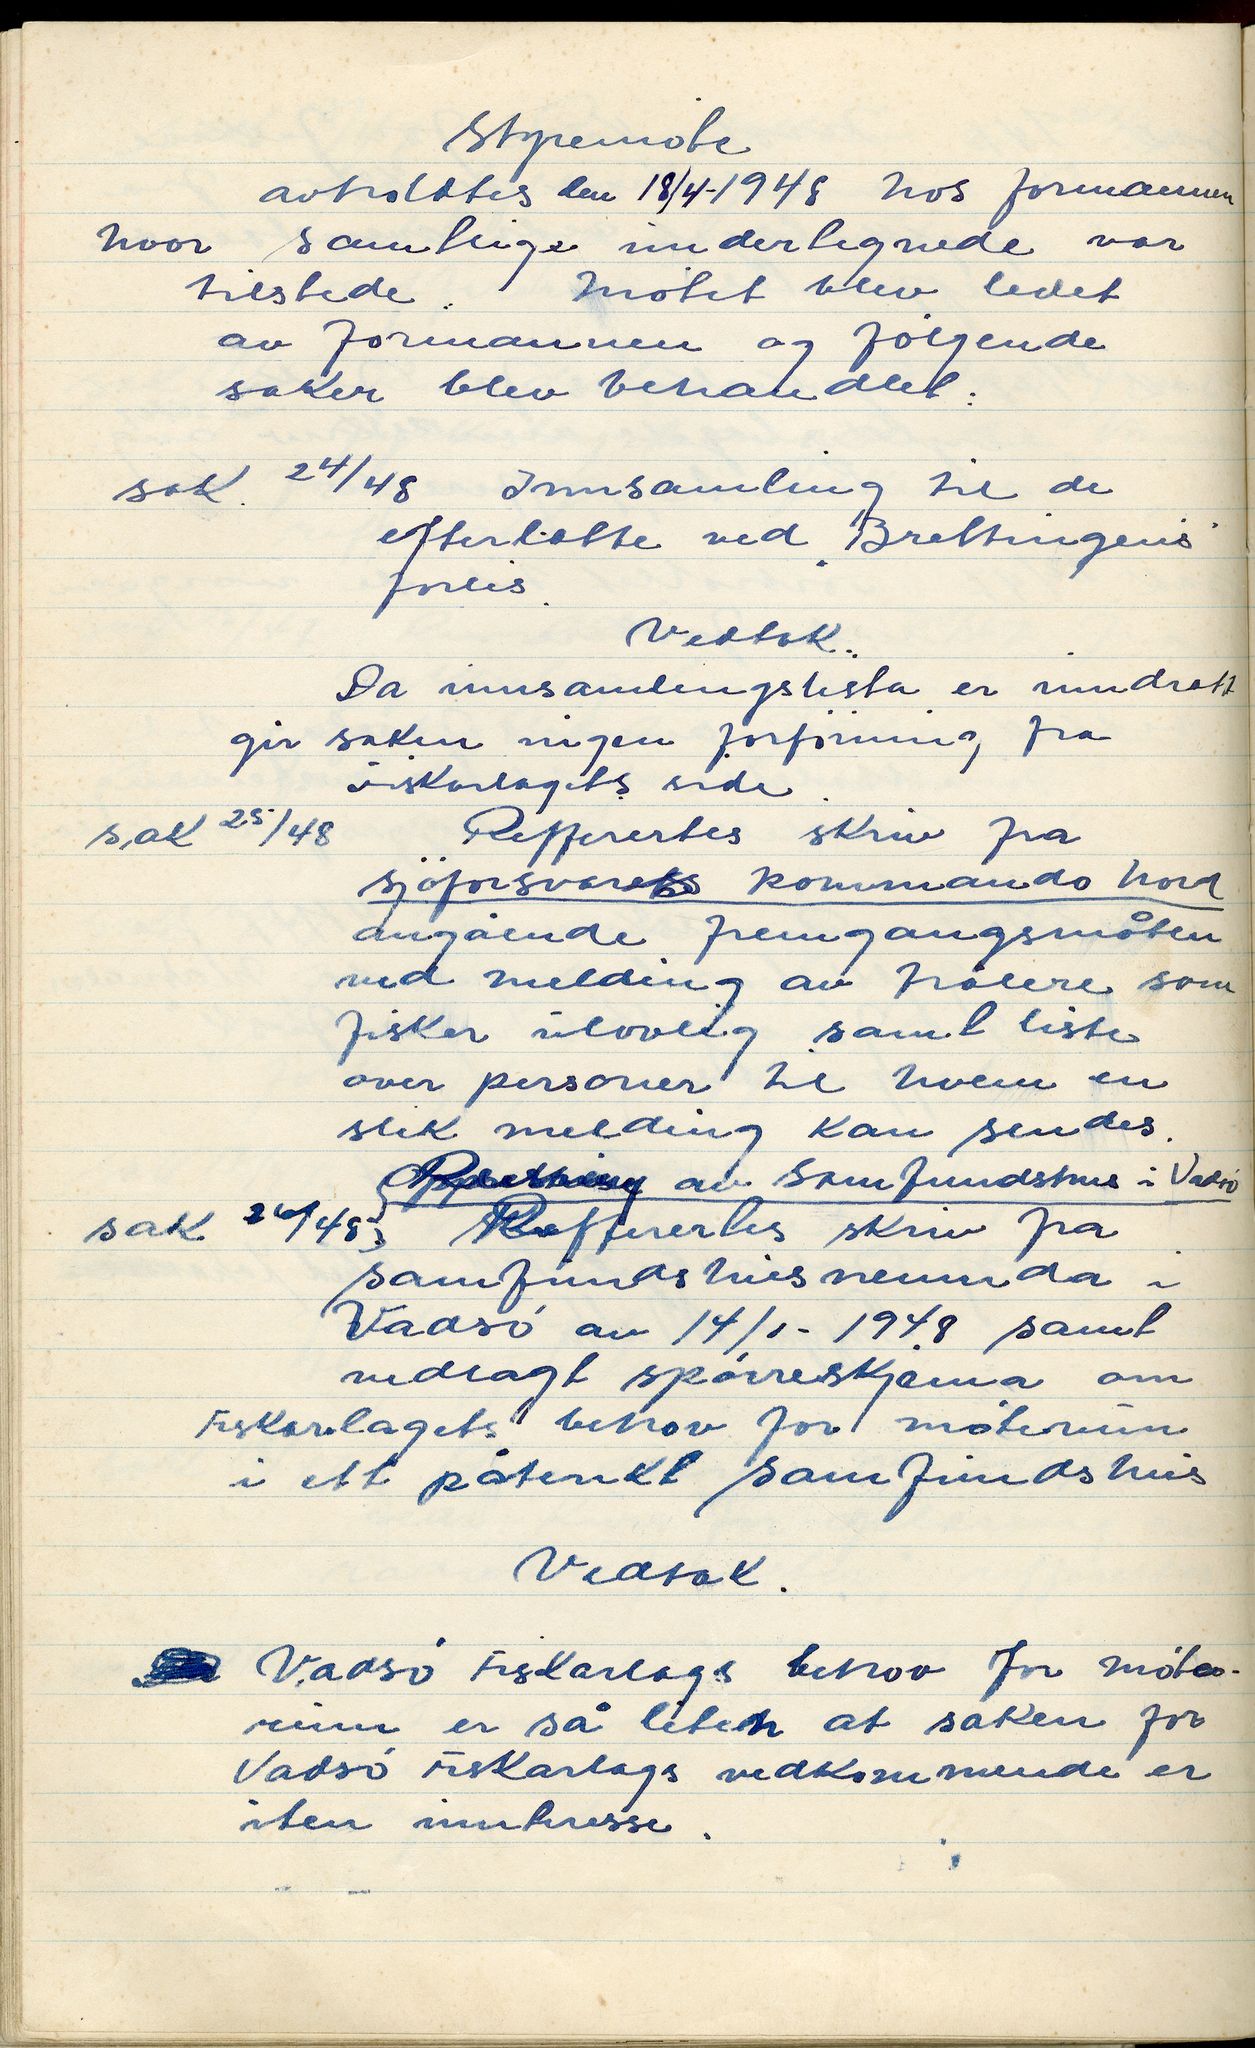 Styremöte
avholdtes den 18/4-1948 hos formannen
hvor samtlige undertegnede var
tilstede. Mötet blev ledet
av formannen og fölgende
saker blev behandlet:
sak. 24/48 Innsamling til de
efterlatte ved "Brettingens"
forlis.
Vedtak.
Da innsamlingslista er inndratt
gir saken ingen forföining fra
Fiskarlagets side.
sak 25/48 Refferertes skriv fra
sjöforsvarets kommando Nord
angående fremgangsmåten
ved melding av trålere som
fisker ulovlig samt liste
over personer til hvem en
slik melding kan sendes.
Oppretting av Samfundshus i Vadsö
sak 26/48 Refferertes skriv fra
samfundshusnemnda i
Vadsö av 14/1-1948 samt
vedlagt spörreskjema om
Fiskarlagets behov for möterum
i ett påtenkt samfundshus
Vedtak.
Vadsö Fiskarlags behov for möte-
rum er så liten at saken for
Vadsö Fiskarlags vedkommende er
uten interesse.